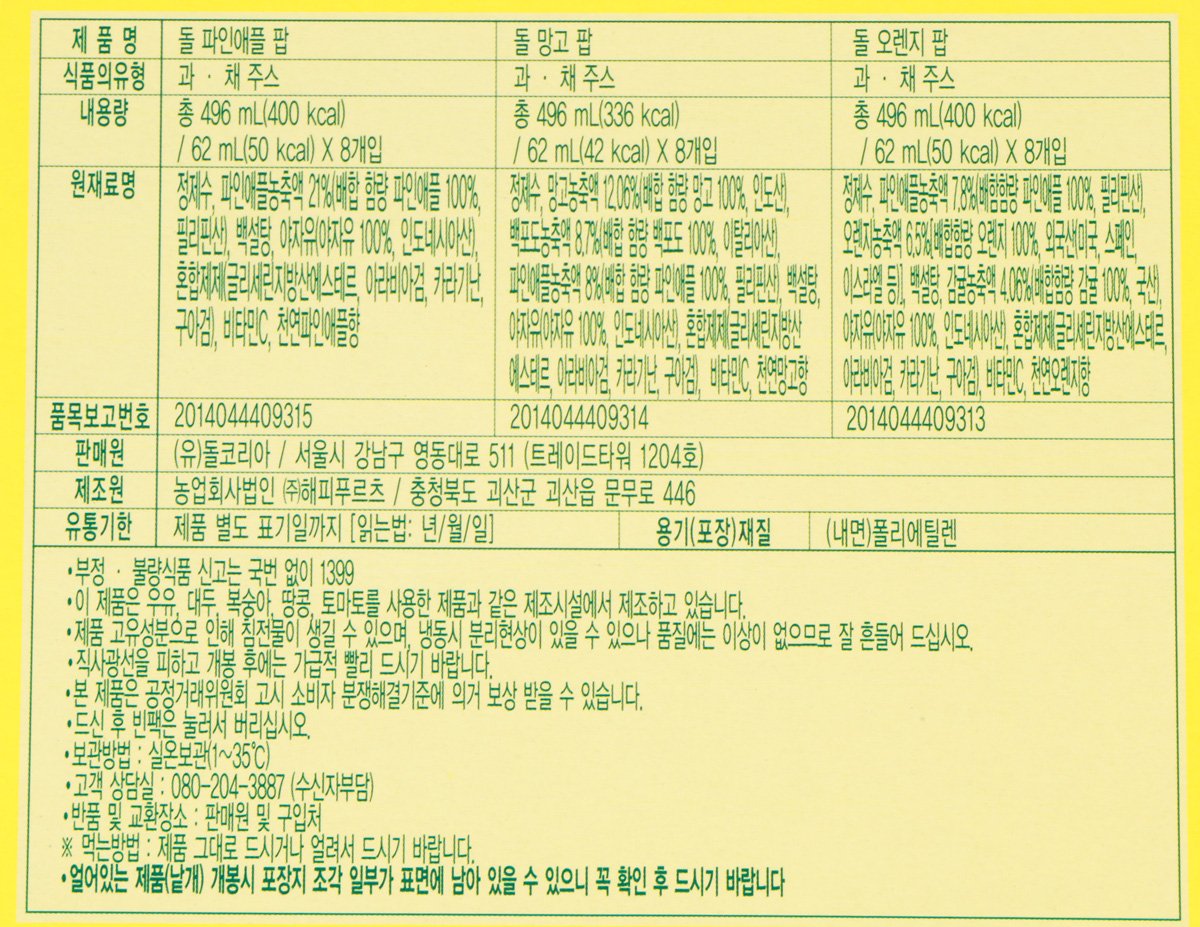 제 품 명 돌 파인애플 팝 돌 망고 팝 돌 오렌지 팝
식품의유형 과 · 채 주스 과 · 채 주스 과 · 채 주스
내용량 총 496 mL(400 kcal) 총 496 mL(336 kcal) 총 496 mL(400 kcal)
/ 62 mL(50 kcal) X 8개입 / 62 mL(42 kcal) X 8개입 / 62 mL(50 kcal) X 8개입
원재료명
정제수, 파인애플농축액 21%(배합 함량 파인애플 100%,
필리핀산), 백설탕, 야자유(야자유 100%, 인도네시아산),
혼합제제(글리세린지방산에스테르, 아라비아검, 카라기난,
구아검), 비타민C, 천연파인애플향
정제수, 망고농축액 12.06%(배합 함량 망고 100%, 인도산),
백포도농축액 8.7%(배합 함량 백포도 100%, 이탈리아산),
파인애플농축액 8%(배합 함량 파인애플 100%, 필리핀산), 백설탕,
야자유(야자유 100%, 인도네시아산), 혼합제제(글리세린지방산
에스테르, 아라비아검, 카라기난, 구아검), 비타민C, 천연망고향
정제수, 파인애플농축액 7.8%(배합함량 파인애플 100%, 필리핀산),
오렌지농축액 6.5%[배합함량 오렌지 100%, 외국산(미국, 스페인,
이스라엘 등)], 백설탕, 감귤농축액 4.06%(배합함량 감귤 100%, 국산),
야자유(야자유 100%, 인도네시아산), 혼합제제(글리세린지방산에스테르,
아라비아검, 카라기난, 구아검), 비타민C, 천연오렌지향
품목보고번호 2014044409315 2014044409314 2014044409313
판매원 (유)돌코리아 / 서울시 강남구 영동대로 511 (트레이드타워 1204호)
제조원 농업회사법인 ㈜해피푸르츠 / 충청북도 괴산군 괴산읍 문무로 446
유통기한 제품 별도 표기일까지 [읽는법: 년/월/일] 용기(포장)재질 (내면)폴리에틸렌
•부정 · 불량식품 신고는 국번 없이 1399
•이 제품은 우유, 대두, 복숭아, 땅콩, 토마토를 사용한 제품과 같은 제조시설에서 제조하고 있습니다.
•제품 고유성분으로 인해 침전물이 생길 수 있으며, 냉동시 분리현상이 있을 수 있으나 품질에는 이상이 없으므로 잘 흔들어 드십시오.
•직사광선을 피하고 개봉 후에는 가급적 빨리 드시기 바랍니다.
•본 제품은 공정거래위원회 고시 소비자 분쟁해결기준에 의거 보상 받을 수 있습니다.
•드신 후 빈팩은 눌러서 버리십시오.
•보관방법 : 실온보관(1~35℃)
•고객 상담실 : 080-204-3887 (수신자부담)
•반품 및 교환장소 : 판매원 및 구입처
※ 먹는방법 : 제품 그대로 드시거나 얼려서 드시기 바랍니다.
•얼어있는 제품(낱개) 개봉시 포장지 조각 일부가 표면에 남아 있을 수 있으니 꼭 확인 후 드시기 바랍니다